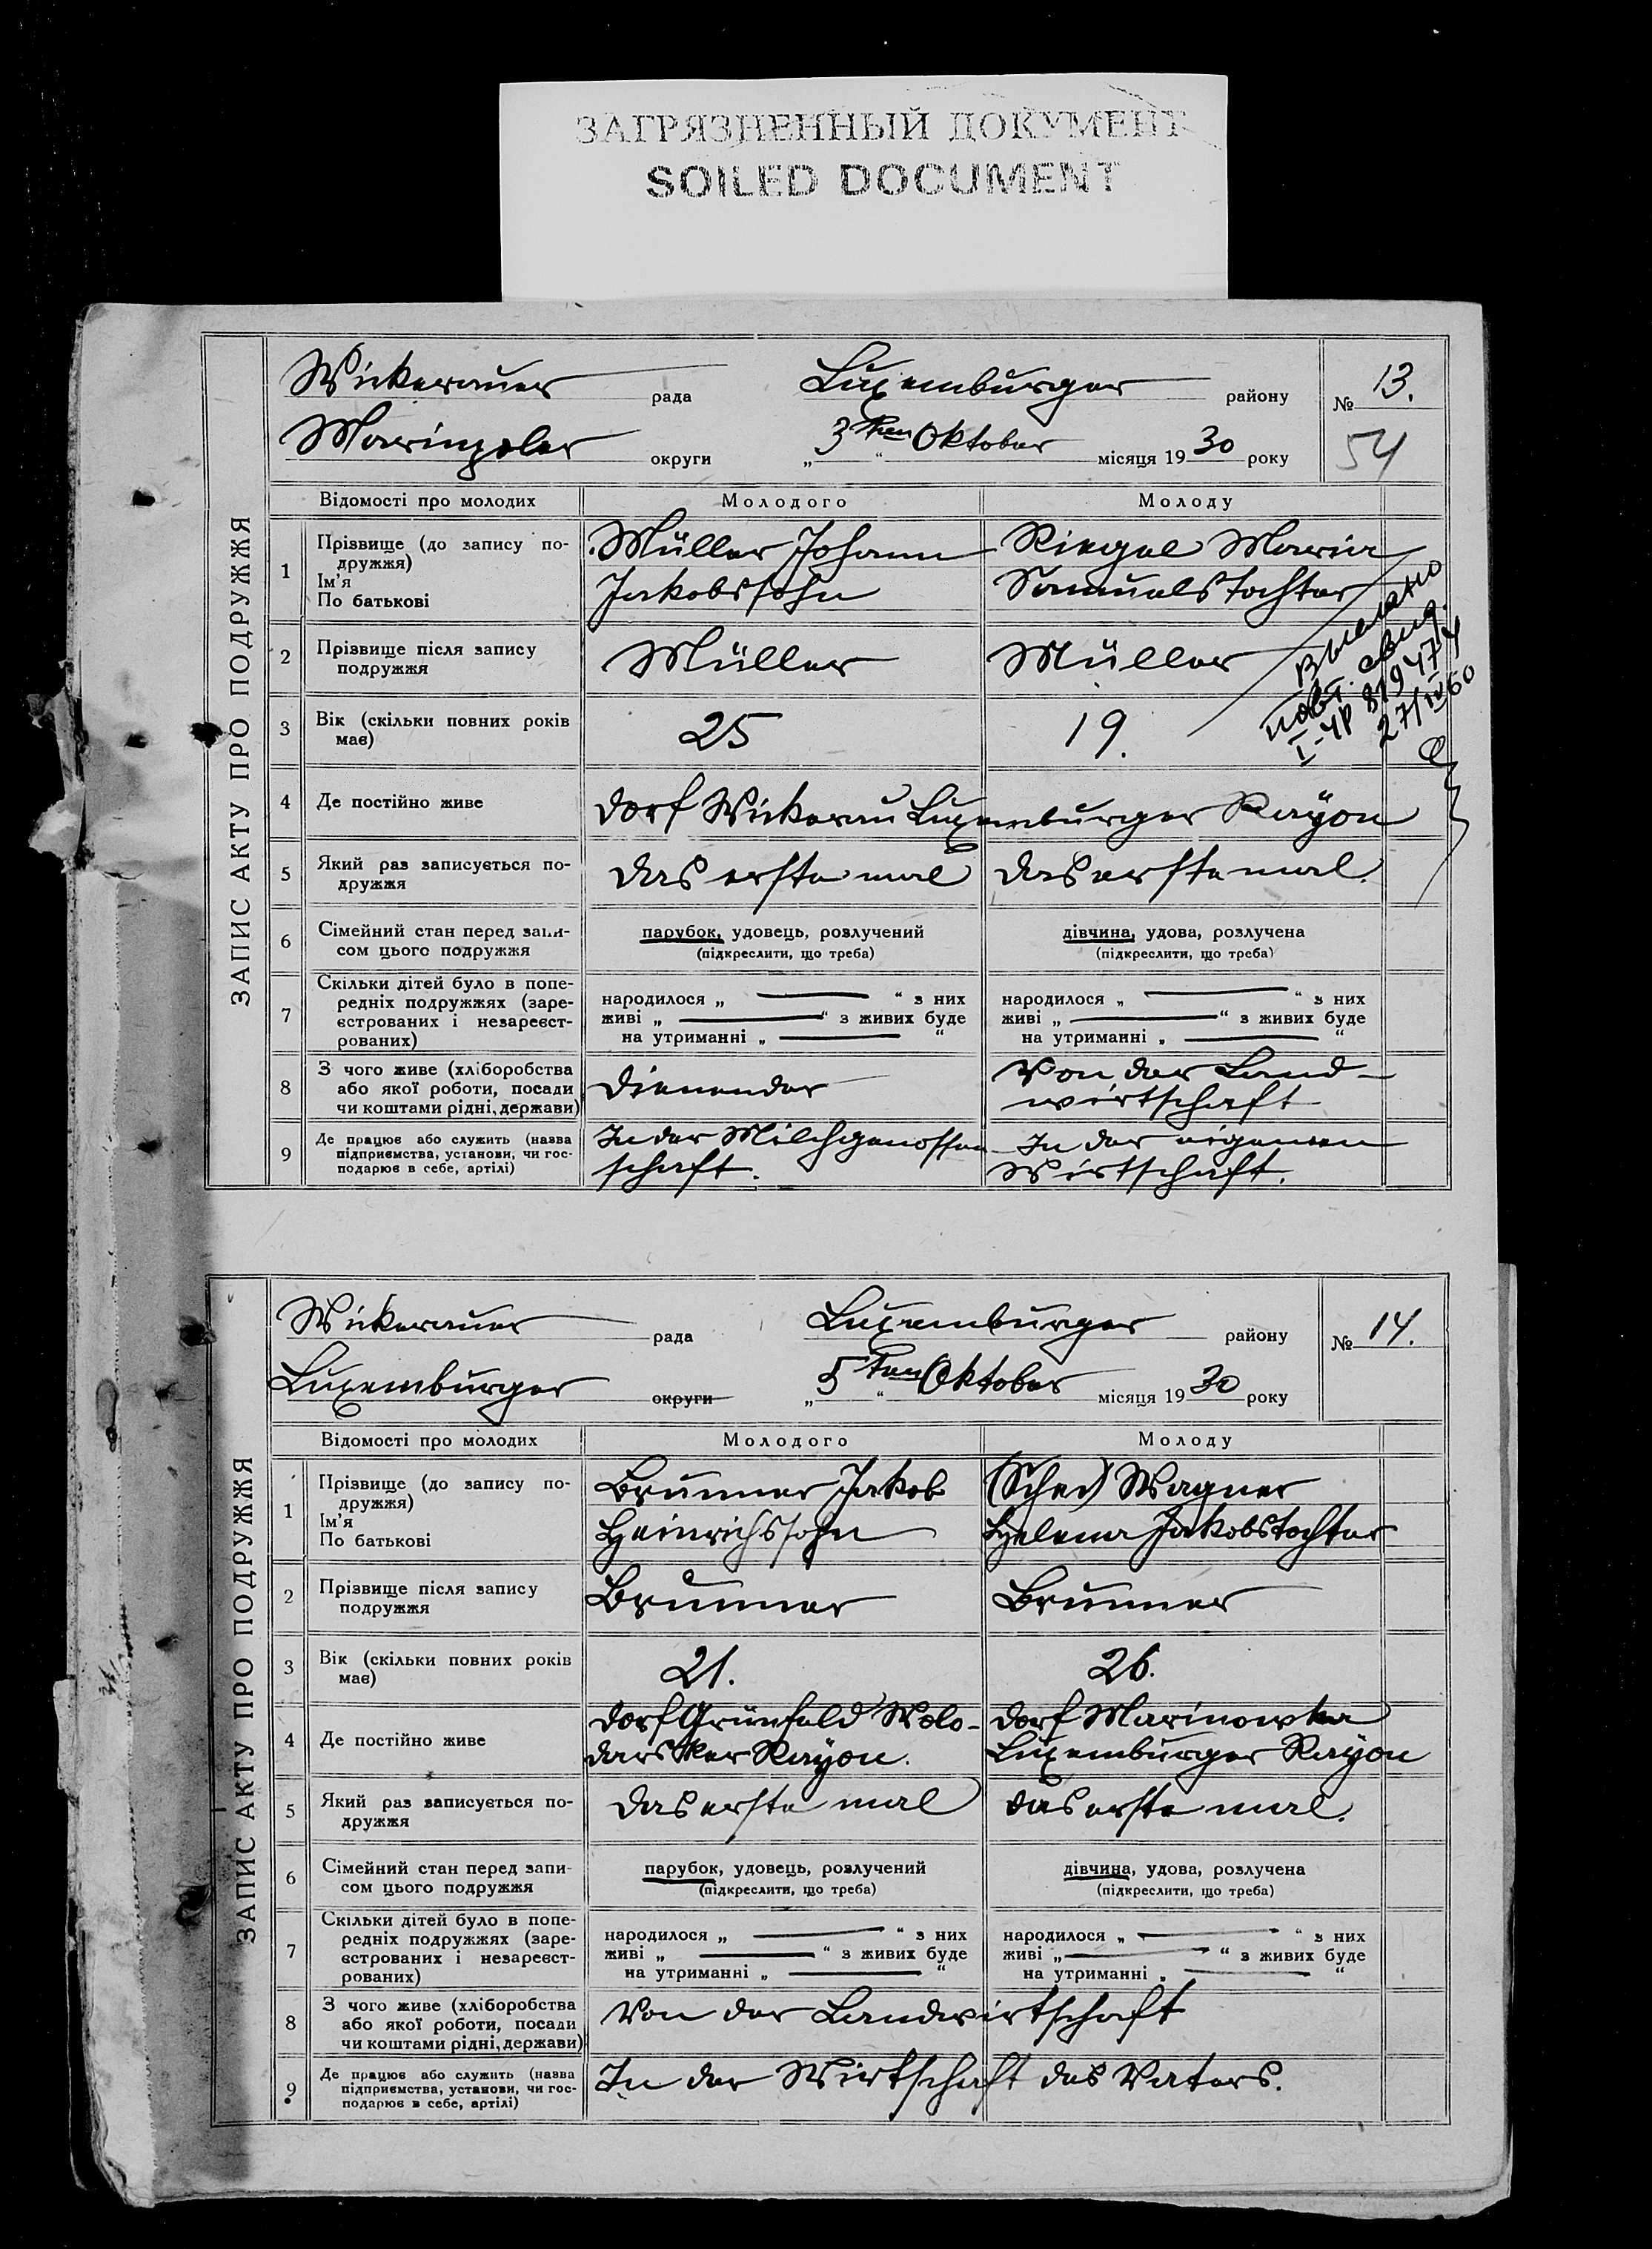 ЗАГРЯЗНЕННЫЙ ДОКУМЕНТ
SOILED DOCUMENT
ЗАПИС АКТУ ПРО ПОДРУЖЖЯ
Wickerauer рада Luxemburger району № 13.
Mariupoler округи „3ten“ Oktober місяця 1930 року 54
Відомості про молодих Молодого Молоду
1 Прізвище (до запису по-
дружжя)
Ім'я
По батькові
Müller Johann
Jakobssohn
Riegel Maria
Samuelstochter
2 Прізвище після запису
подружжя
Müller Müller
3 Вік (скільки повних років
має)
25 19.
Выслано
повт. свид.
27/IV 60
4 Де постійно живе dorf Wickerau Luxemburger Rayon
5 Який раз записується по-
дружжя
das erste mal das erste mal.
6 Сімейний стан перед запи-
сом цього подружжя
парубок, удовець, розлучений
(підкреслити, що треба)
дівчина, удова, розлучена
(підкреслити, що треба)
7 Скільки дітей було в попе-
редніх подружжях (заре-
єстрованих і незареєст-
рованих)
народилося „ “ з них
живі „ “ з живих буде
на утриманні „ “
народилося „ “ з них
живі „ “ з живих буде
на утриманні „ “
8 З чого живе (хліборобства
або якої роботи, посади
чи коштами рідні, держави)
dienender
Von der Land-
wirtschaft
9 Де працює або служить (назва
підприємства, установи, чи гос-
подарює в себе, артілі)
In der Milchgenossen
schaft.
In der eigenen
Wirtschaft.
ЗАПИС АКТУ ПРО ПОДРУЖЖЯ
Wickerauer рада Luxemburger району № 14.
Luxemburger округи „5ten“ Oktober місяця 1930 року
Відомості про молодих Молодого Молоду
1 Прізвище (до запису по-
дружжя)
Ім'я
По батькові
Brunner Jakob
Heinrichssohn
Wagner
Helena Jakobstochter
2 Прізвище після запису
подружжя
Brunner Brunner
3 Вік (скільки повних років
має)
21. 26.
4 Де постійно живе
dorf Grünfeld Wolo-
darsker Rayon.
dorf Marinowka
Luxemburger Rayon
5 Який раз записується по-
дружжя
das erste mal das erste mal.
6 Сімейний стан перед запи-
сом цього подружжя
парубок, удовець, розлучений
(підкреслити, що треба)
дівчина, удова, розлучена
(підкреслити, що треба)
7 Скільки дітей було в попе-
редніх подружжях (заре-
єстрованих і незареєст-
рованих)
народилося „ “ з них
живі „ “ з живих буде
на утриманні „ “
народилося „ “ з них
живі „ “ з живих буде
на утриманні „ “
8 З чого живе (хліборобства
або якої роботи, посади
чи коштами рідні, держави)
Von der Landwirtschaft
9 Де працює або служить (назва
підприємства, установи, чи гос-
подарює в себе, артілі)
In der Wirtschaft des Vaters.